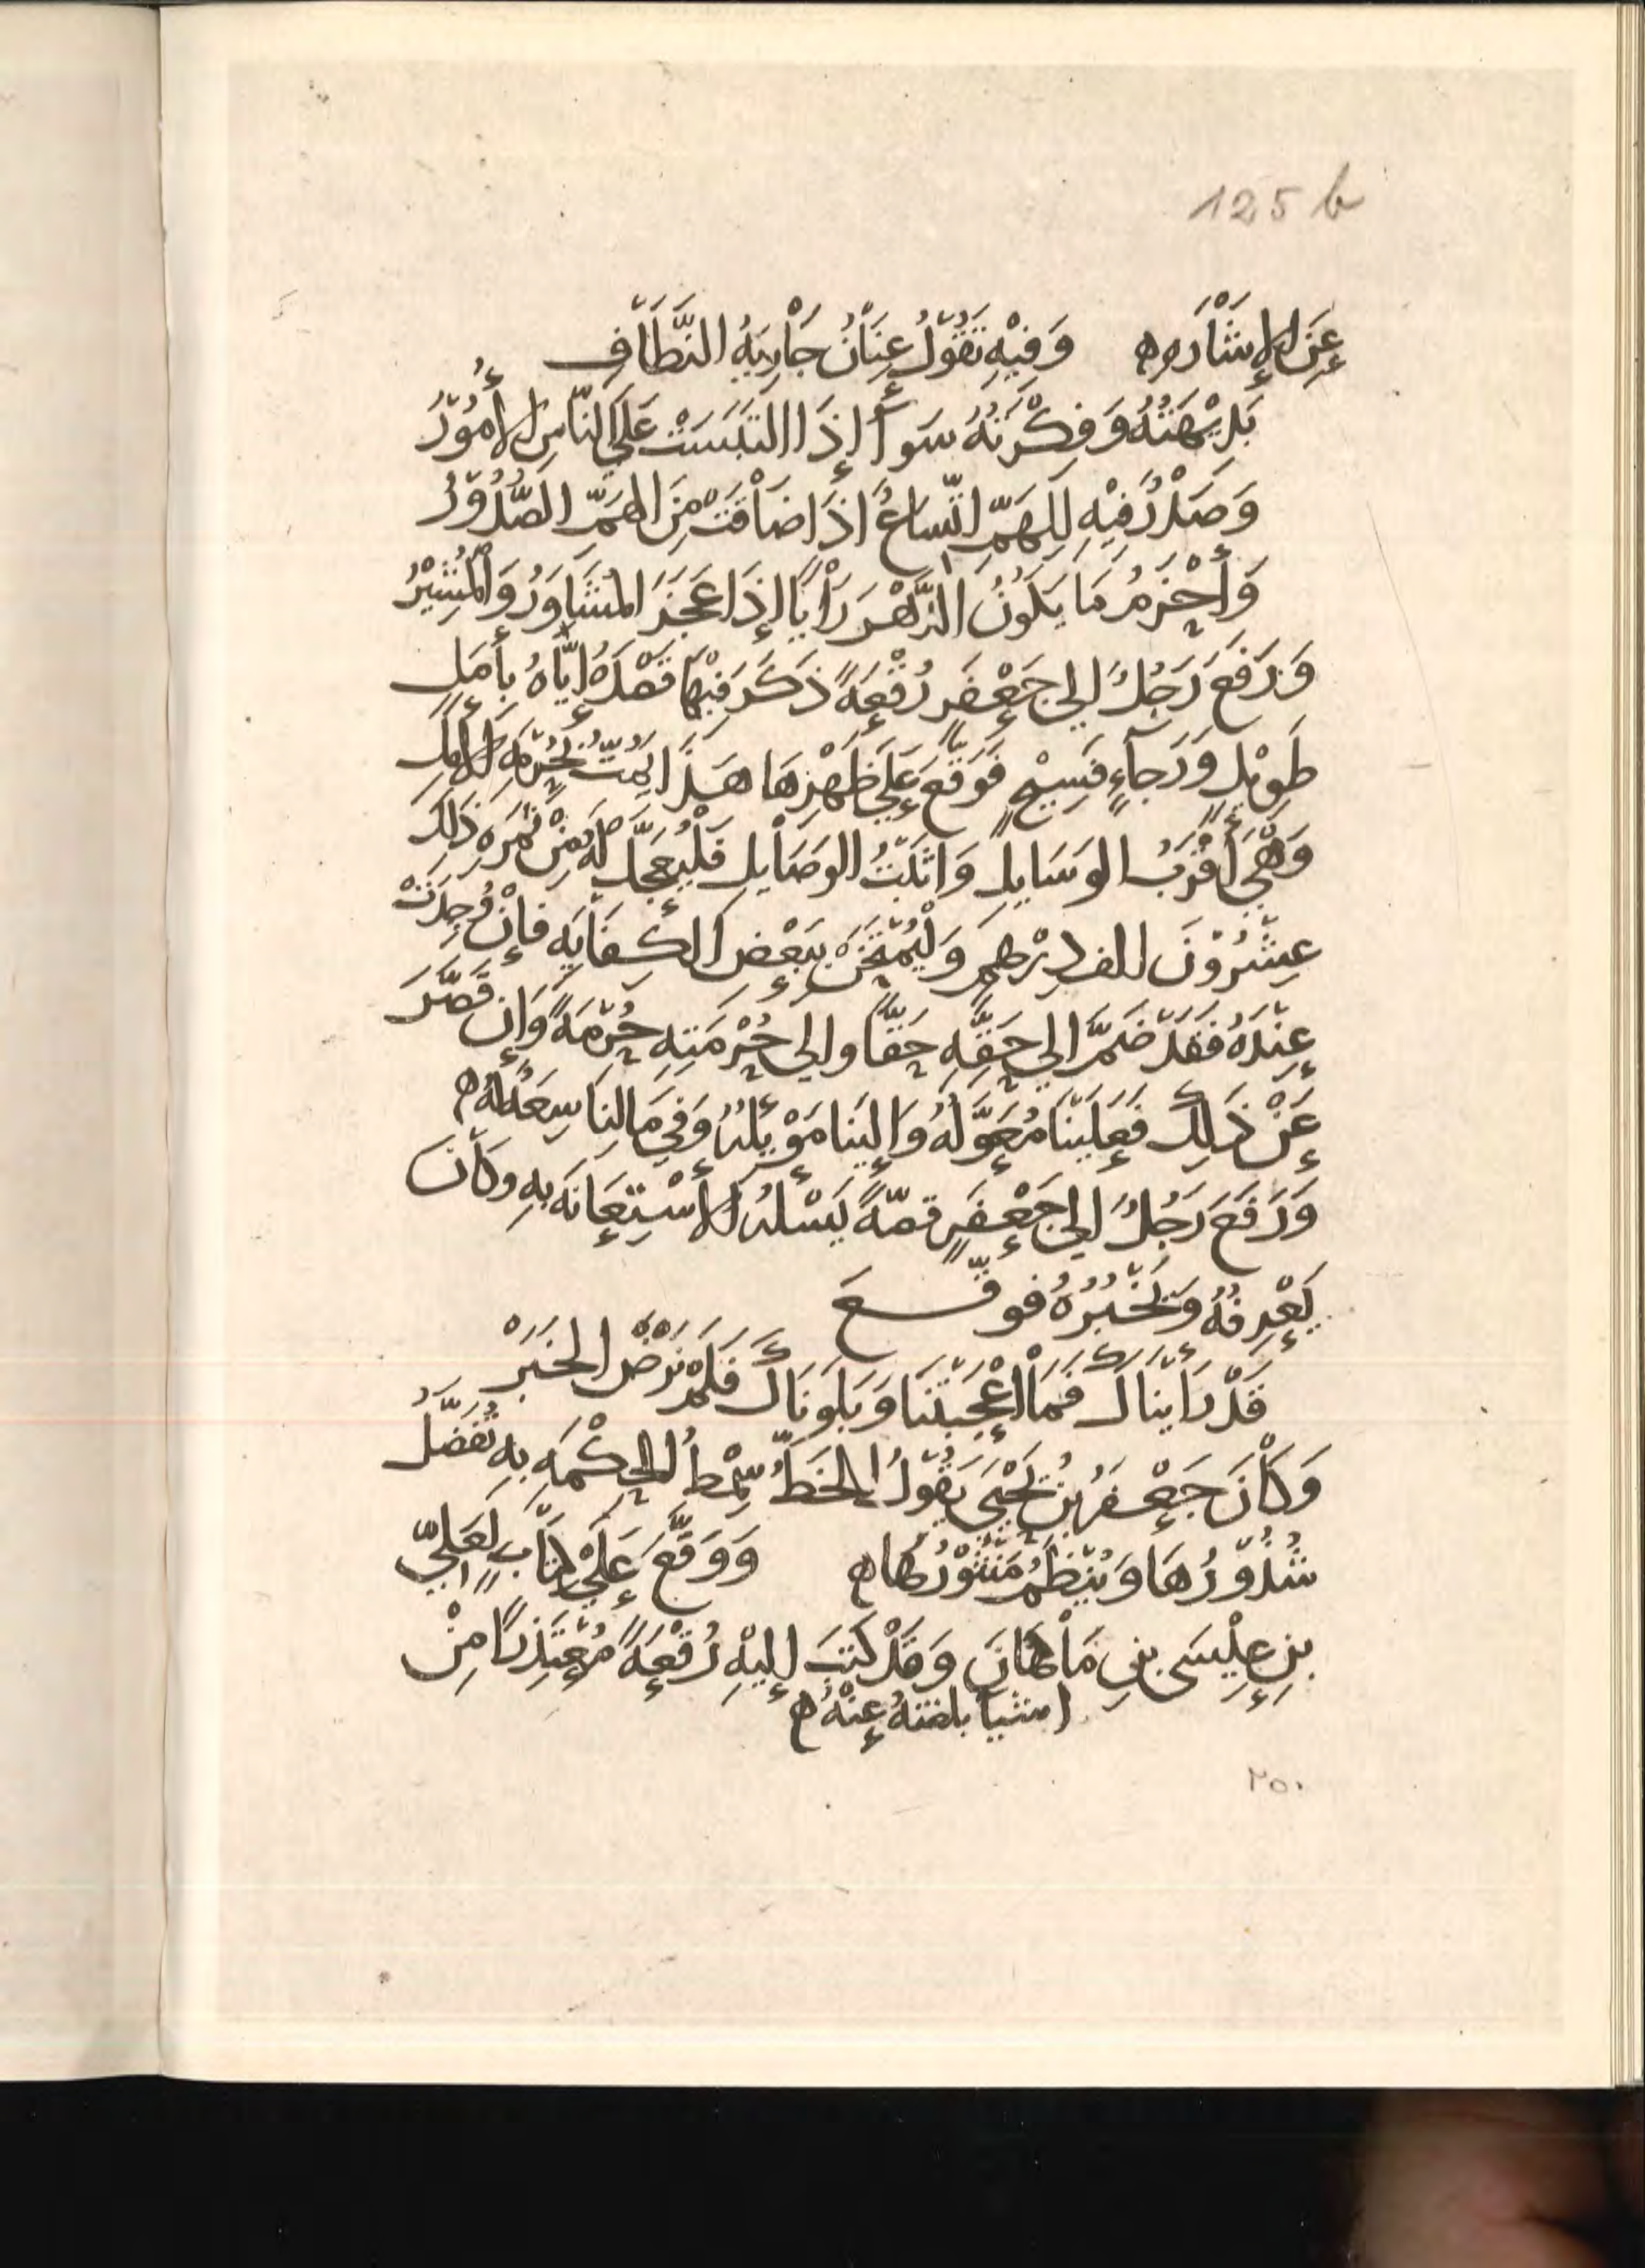 125 b
عَنِ الإِشَارَهِ ه وَفِيْهِ تَقُوْلُ عِنَانُ جَاْرِيَهُ النَّطَاّفِ
بَدِيْهَتُهُ وَفِكْرَتُهُ سَوآءٌ إِذَا التَبَسَتْ عَلَي النَّاسِ الأُمُوْرُ
وَصَدْرٌ فِيْهِ لِلهَمِّ اتّساعٌ اذَا ضَاْقَتْ مِنَ الهَمِّ الصُّدُوْرُ
وَأَحْزَمُ مَا يَكُوْنُ الدَّهْرَ رَأْيًا إِذَا عَجَزَ المُشَاوَرُ وَالْمُشِيْرُ
وَرَفَعَ رَجُلٌ الي جَعْفَرٍ رُقْعَةً ذَكَرَ فِيْهَا قَصْدَهُ إِيَّاهُ بِأَمَلٍ
طَوِيْلٍ وَرَجآءٍ فَسِيْحٍ فَوَقَّعَ عَلَي ظَهْرِهَا هَذَا يَمُتُّ بِحُرْمَهِ الأَمَلِ
وَهْيَ أَقْرَبُ الوَسَايِلِ وَاثبَتُ الوَصَاْيِلِ فَلْيُعَجَّل لَهُ مِنْ ثَمَرَهِ ذَلِكَ
عِشْرُوْنَ الف دِرْهمٍ وَلْيُمْتَحَنْ بِبَعْضِ الكِفَايَه فَإِنْ وُجِدَتْ
عِنْدَهُ فَقَدْ ضَمَّ الي حَقِّهِ حَقًّا والي حُرْمَتِهِ حُرْمَةً وَإِن قَصَّرَ
عَنْ ذَلِكَ فَعَلَيْنَا مُعَوَّلُهُ وَإِلَينَا مَوْئِلُهُ وَفِي مَالِنَا سِعَةٌ لَهُ ه
وَرَفَعَ رَجُلٌ الي جَعْفَرٍ قصّةً يَسْلُهُ الاسْتِعَانَهَ بِهِ وكَاْنَ
يَعْرِفُهُ وَيَخْبُرُهُ فوقّـــعَ
قَدْ رَاَيْنَاكَ فَمَاْ اعْجَبْتَنَا وَبَلَونَاكَ فَلَمْ نَرْضَ الخَبَرْ
وَكَاْنَ جَعْفَرُ بنُ يَحْيَي يَقُوْلُ الخَطُّ سِمْطُ الحِكْمَهِ بِهِ تُفَصَّلُ
شُذُوْرُهَا وَيُنْظَمُ مَنْثُوْرُهَا ه وَوَقَّعَ عَلَي كتَابٍ لِعَلِيِّ
بنِ عِيْسَي بنِ مَاْهَانَ وَقَدْ كَتَبَ إِلَيْهِ رُقْعَةً مُعْتَذِرًا مِنْ
اشيا بلغتهُ عَنْهُ ه
٢٥٠